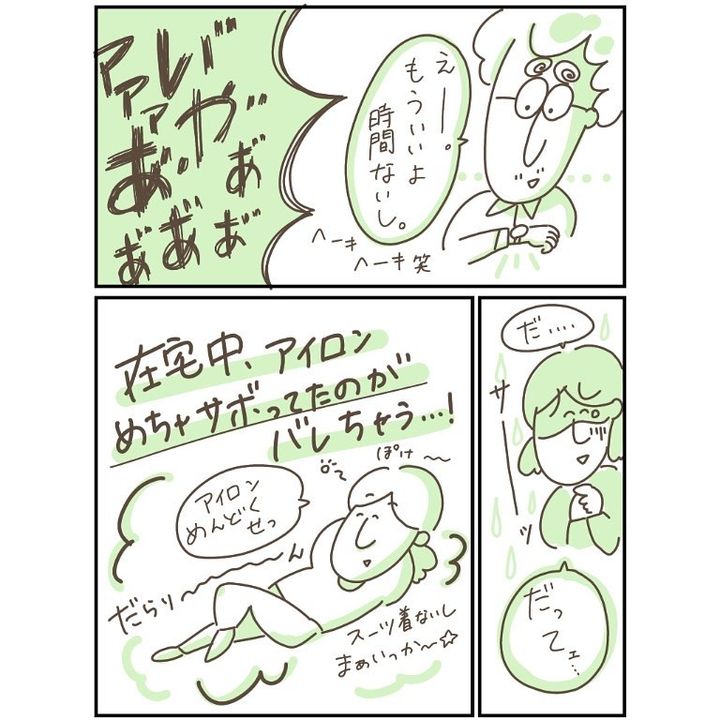 えーー。
もういいよ
時間ないし。
ヘーキ
ヘーキ笑
い゙や゙ぁ゙ぁ゙
だ‥‥
サーーッ
だってェ…
在宅中、アイロン
めちゃサボってたのが
バレちゃう…!
ぽけ～～
アイロン
めんどく
せっ
だらり～～～～ん
スーツ着ないし
まぁいっか～☆